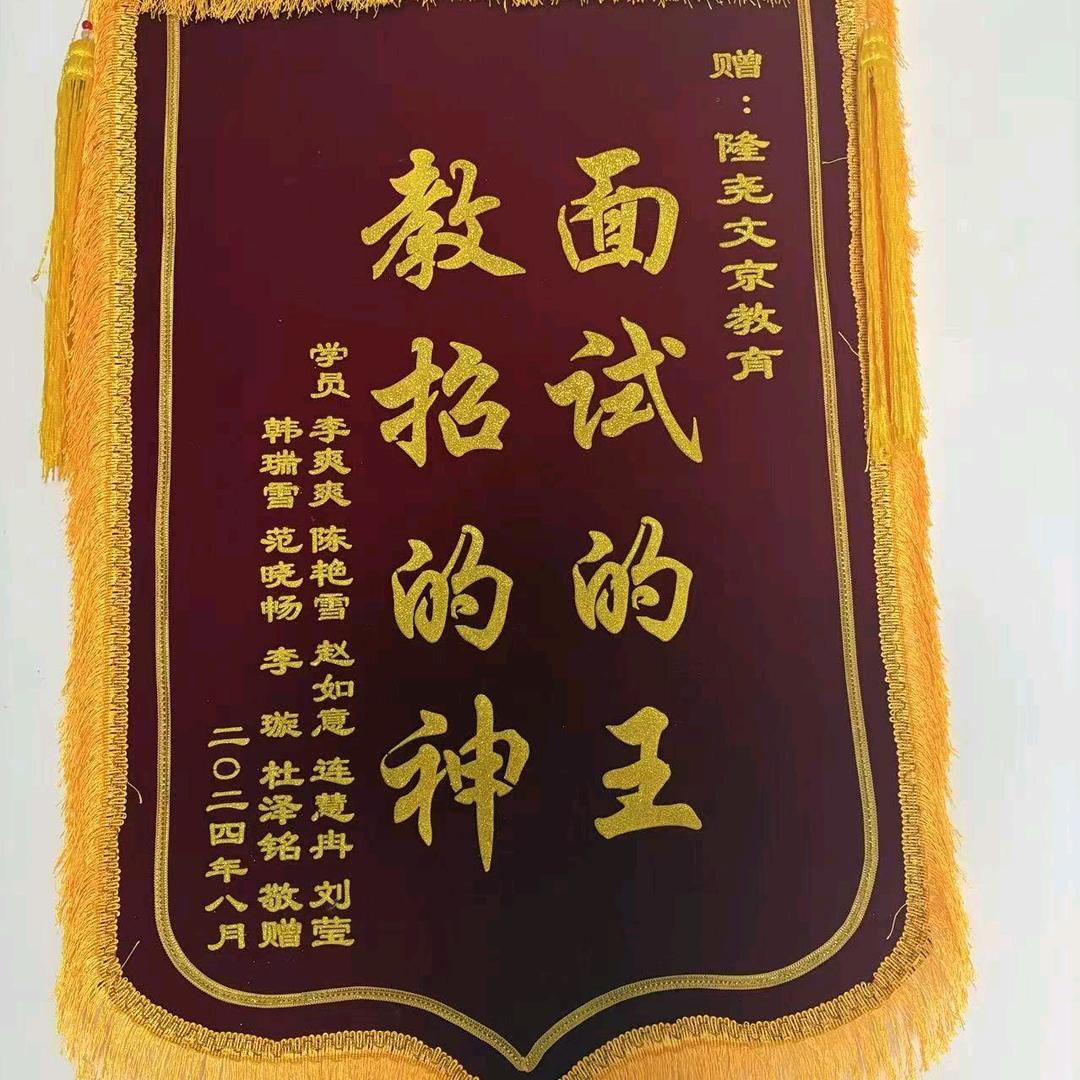 赠：隆尧文京教育
面试的王
教招的神
学员 李爽爽 陈艳雪 赵如意 连慧冉 刘莹
韩瑞雪 范晓畅 李 璇 杜泽铭 敬赠
二〇二四年八月